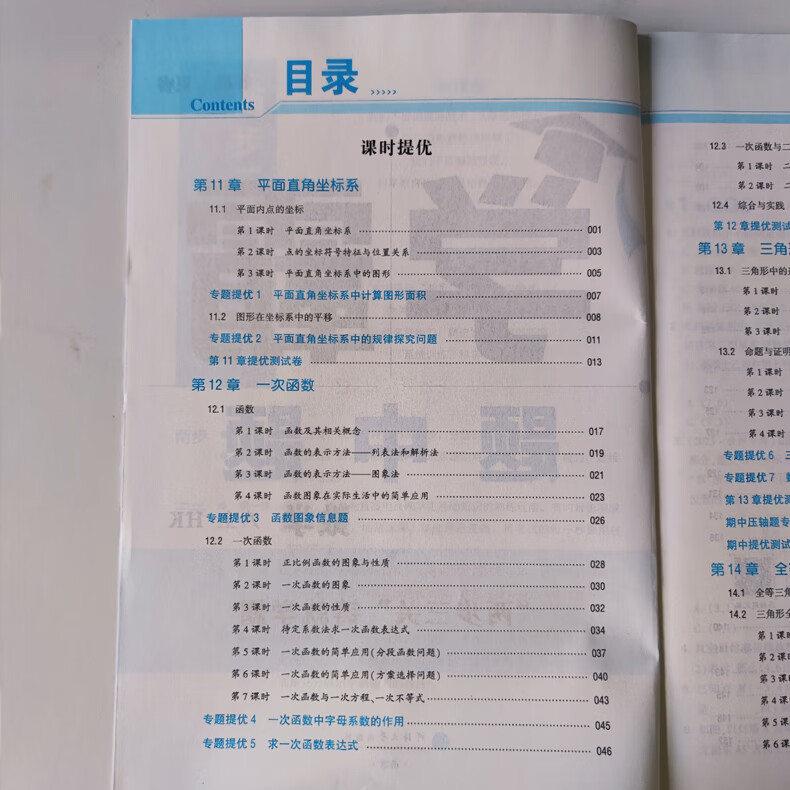 目录
Contents
课时提优
第11章 平面直角坐标系
11.1 平面内点的坐标
第1课时 平面直角坐标系 001
第2课时 点的坐标符号特征与位置关系 003
第3课时 平面直角坐标系中的图形 005
专题提优1 平面直角坐标系中计算图形面积 007
11.2 图形在坐标系中的平移 008
专题提优2 平面直角坐标系中的规律探究问题 011
第11章提优测试卷 013
第12章 一次函数
12.1 函数
第1课时 函数及其相关概念 017
第2课时 函数的表示方法——列表法和解析法 019
第3课时 函数的表示方法——图象法 021
第4课时 函数图象在实际生活中的简单应用 023
专题提优3 函数图象信息题 026
12.2 一次函数
第1课时 正比例函数的图象与性质 028
第2课时 一次函数的图象 030
第3课时 一次函数的性质 032
第4课时 待定系数法求一次函数表达式 034
第5课时 一次函数的简单应用(分段函数问题) 037
第6课时 一次函数的简单应用(方案选择问题) 040
第7课时 一次函数与一次方程、一次不等式 043
专题提优4 一次函数中字母系数的作用 045
专题提优5 求一次函数表达式 046
12.3 一次函数与二
第1课时 二
第2课时 二
12.4 综合与实践
第12章提优测试
第13章 三角
13.1 三角形中的
第1课时
第2课时
第3课时
13.2 命题与证明
第1课时
第2课时
第3课时
第4课时
专题提优6 三
专题提优7
第13章提优测
期中压轴题专
期中提优测试
第14章 全
14.1 全等三角
14.2 三角形全
第1课
第2课
第3课
第4课
第5课
第6课